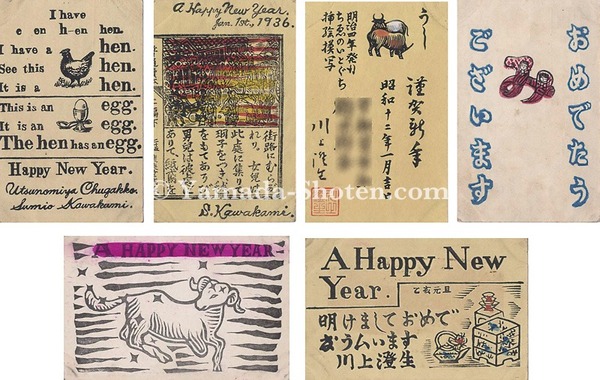 I have
e on h-en hen.
I have a hen.
See this hen.
It is a hen.
This is an egg.
It is an egg.
The hen has an egg.
Happy New Year.
Utsunomiya Chugakko.
Sumio Kawakami.
A Happy New Year.
Jan. 1st, 1936.
街路にむら
れり、女児は
此處に集り
S. Kawakami.
うし
明治四年発刊
ちゑのいとぐち
挿絵模写
謹賀新年
昭和十二年一月吉
川上澄生
おめでたう
ございます
み
© Yamada-Shoten.com
A HAPPY NEW YEAR
A Happy New
Year.
乙亥元旦
明けましておめで
川上澄生